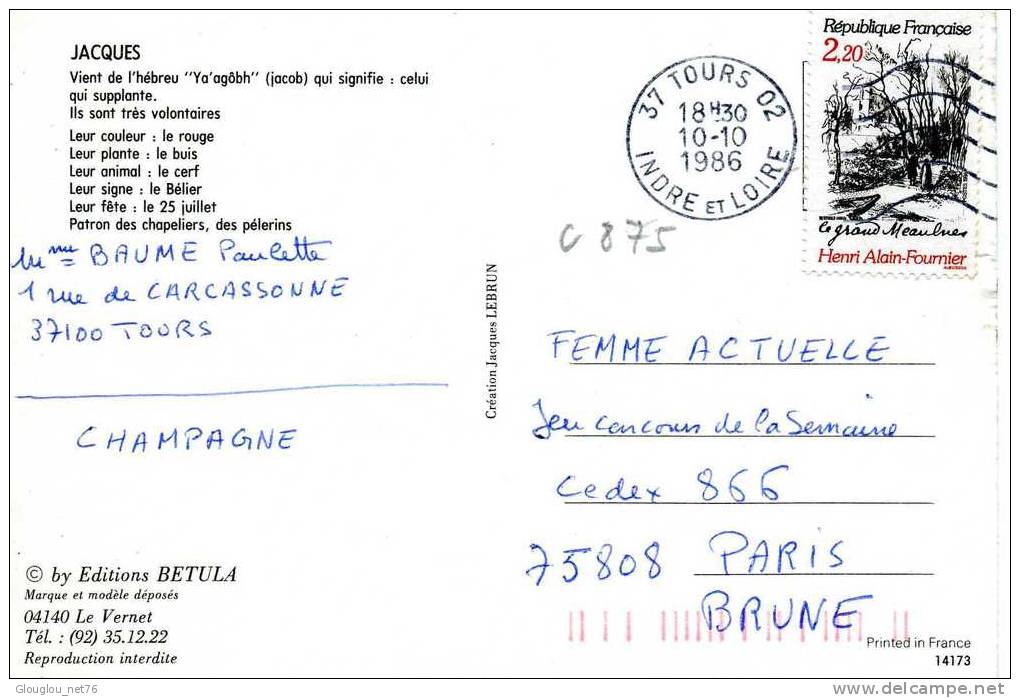 JACQUES
Vient de l'hébreu "Ya'agôbh" (jacob) qui signifie : celui
qui supplante.
Ils sont très volontaires
Leur couleur : le rouge
Leur plante : le buis
Leur animal : le cerf
Leur signe : le Bélier
Leur fête : le 25 juillet
Patron des chapeliers, des pélerins
Mme BAUME Paulette
1 rue de CARCASSONNE
37100 TOURS
CHAMPAGNE
© by Editions BETULA
Marque et modèle déposés
04140 Le Vernet
Tél. : (92) 35.12.22
Reproduction interdite
Création Jacques LEBRUN
37 TOURS 02
18H30
10-10
1986
INDRE ET LOIRE
République Française
2,20
le grand Meaulnes
Henri Alain-Fournier
C 875
FEMME ACTUELLE
Jeu concours de la Semaine
Cedex 866
75808 PARIS
BRUNE
Printed in France
14173
Glouglou_net76
delcampe.net